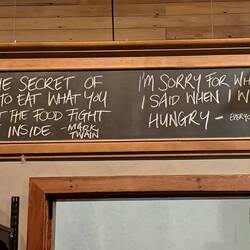 E SECRET OF
TO EAT WHAT YOU
T THE FOOD FIGHT
INSIDE. -MARK
TWAIN
I'M SORRY FOR WH
I SAID WHEN I W
HUNGRY - EVERYO